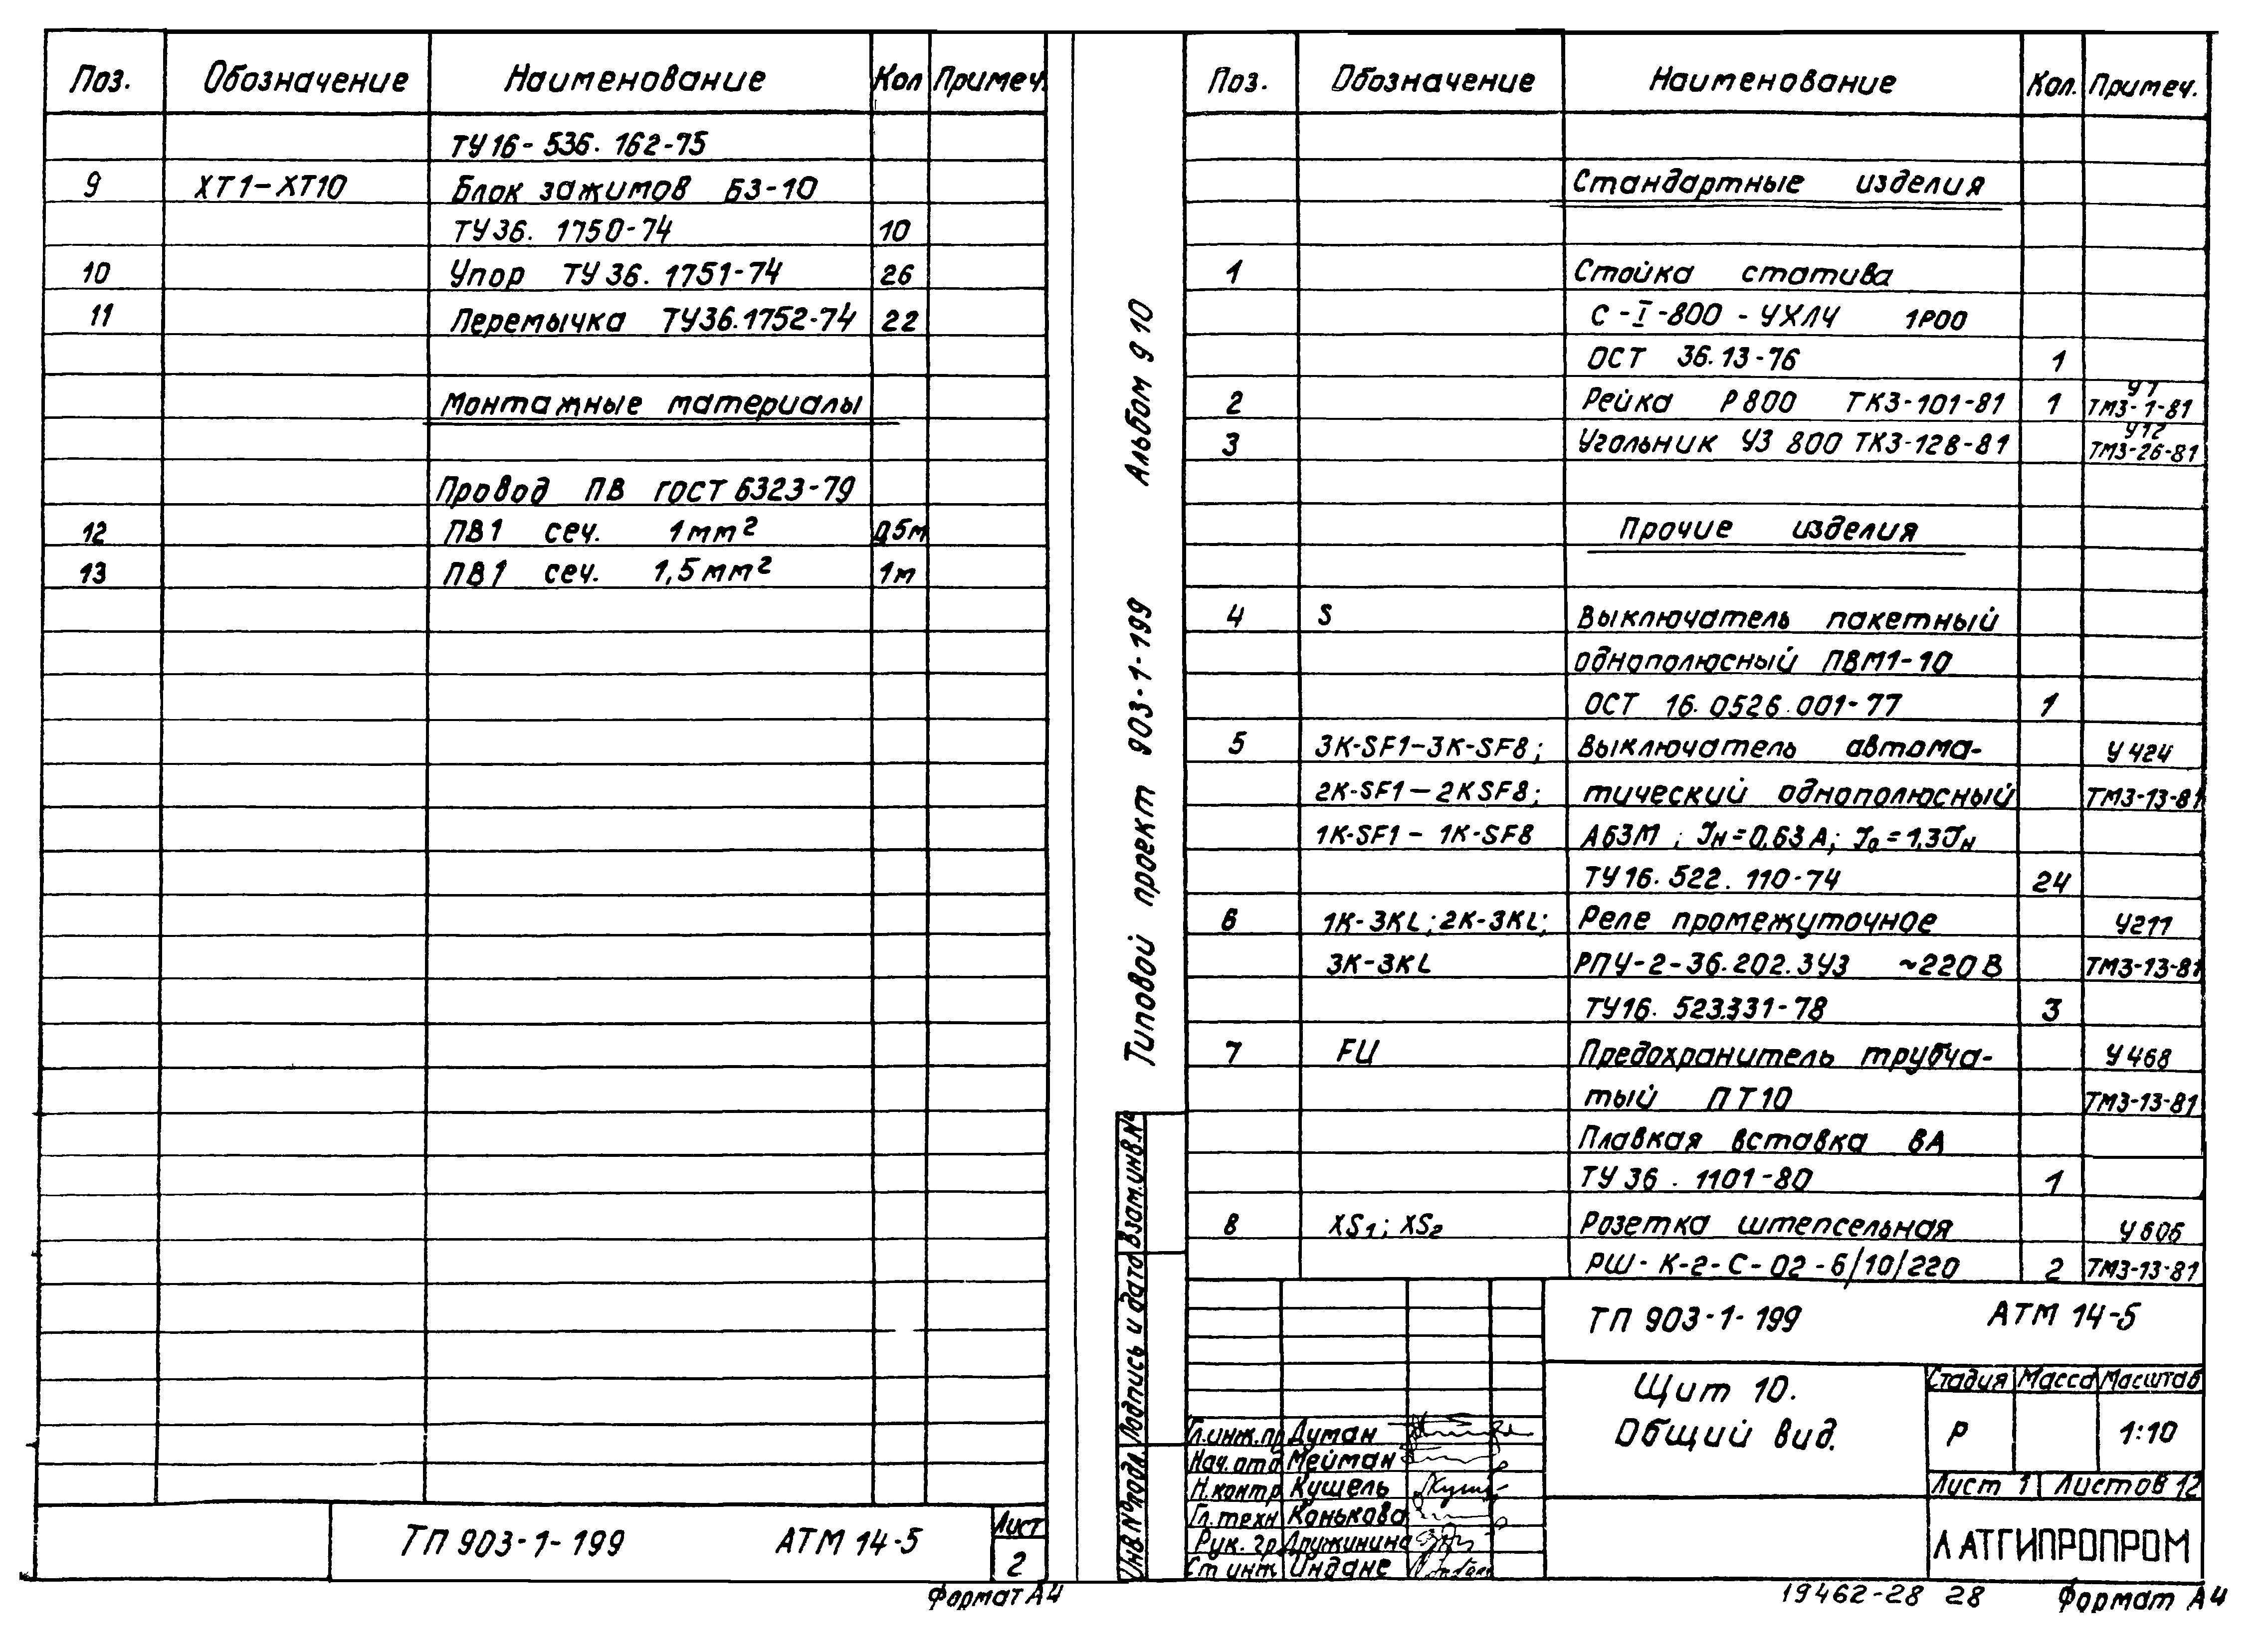 Поз. Обозначение Наименование Кол Примеч.
ТУ16-536.162-75
9 ХТ1-ХТ10 Блок зажимов БЗ-10
ТУ36.1750-74 10
10 Упор ТУ36.1751-74 26
11 Перемычка ТУ36.1752-74 22
Монтажные материалы
Провод ПВ ГОСТ 6323-79
12 ПВ1 сеч. 1мм² 0,5м
13 ПВ1 сеч. 1,5мм² 1м
ТП 903-1-199 АТМ 14-5
Лист
2
Формат А4
Альбом 9 10
Типовой проект 903-1-199
Взам.инв.№
Подпись и дата
Инв.№подл.
Поз. Обозначение Наименование Кол. Примеч.
Стандартные изделия
1 Стойка статива
С-I-800-УХЛ4 1Р00
ОСТ 36.13-76 1
2 Рейка Р800 ТК3-101-81 1 У1 ТМ3-1-81
3 Угольник УЗ 800 ТК3-128-81 У12 ТМ3-26-81
Прочие изделия
4 S Выключатель пакетный
однополюсный ПВМ1-10
ОСТ 16.0526.001-77 1
5 3К-SF1-3К-SF8; Выключатель автома- У424
2К-SF1-2КSF8; тический однополюсный ТМ3-13-81
1К-SF1-1К-SF8 А63М; Iн=0,63А; I₀=1,3Iн
ТУ16.522.110-74 24
6 1К-3KL; 2К-3KL; Реле промежуточное У211
3К-3KL РПУ-2-36.202.3У3 ~220В ТМ3-13-81
ТУ16.523.331-78 3
7 FU Предохранитель трубча- У468
тый ПТ10 ТМ3-13-81
Плавкая вставка 6А
ТУ36.1101-80 1
8 XS1; XS2 Розетка штепсельная У606
РШ-К-2-С-02-6/10/220 2 ТМ3-13-81
ТП 903-1-199 АТМ 14-5
Щит 10.
Общий вид.
Стадия Масса Масштаб
Р 1:10
Лист 1 Листов 12
ЛАТГИПРОПРОМ
Гл.инж.пр Думан
Нач.отд Мейман
Н.контр Кушель
Гл.техн Конькова
Рук.гр Дружинина
Ст инж Индане
19462-28 28
Формат А4